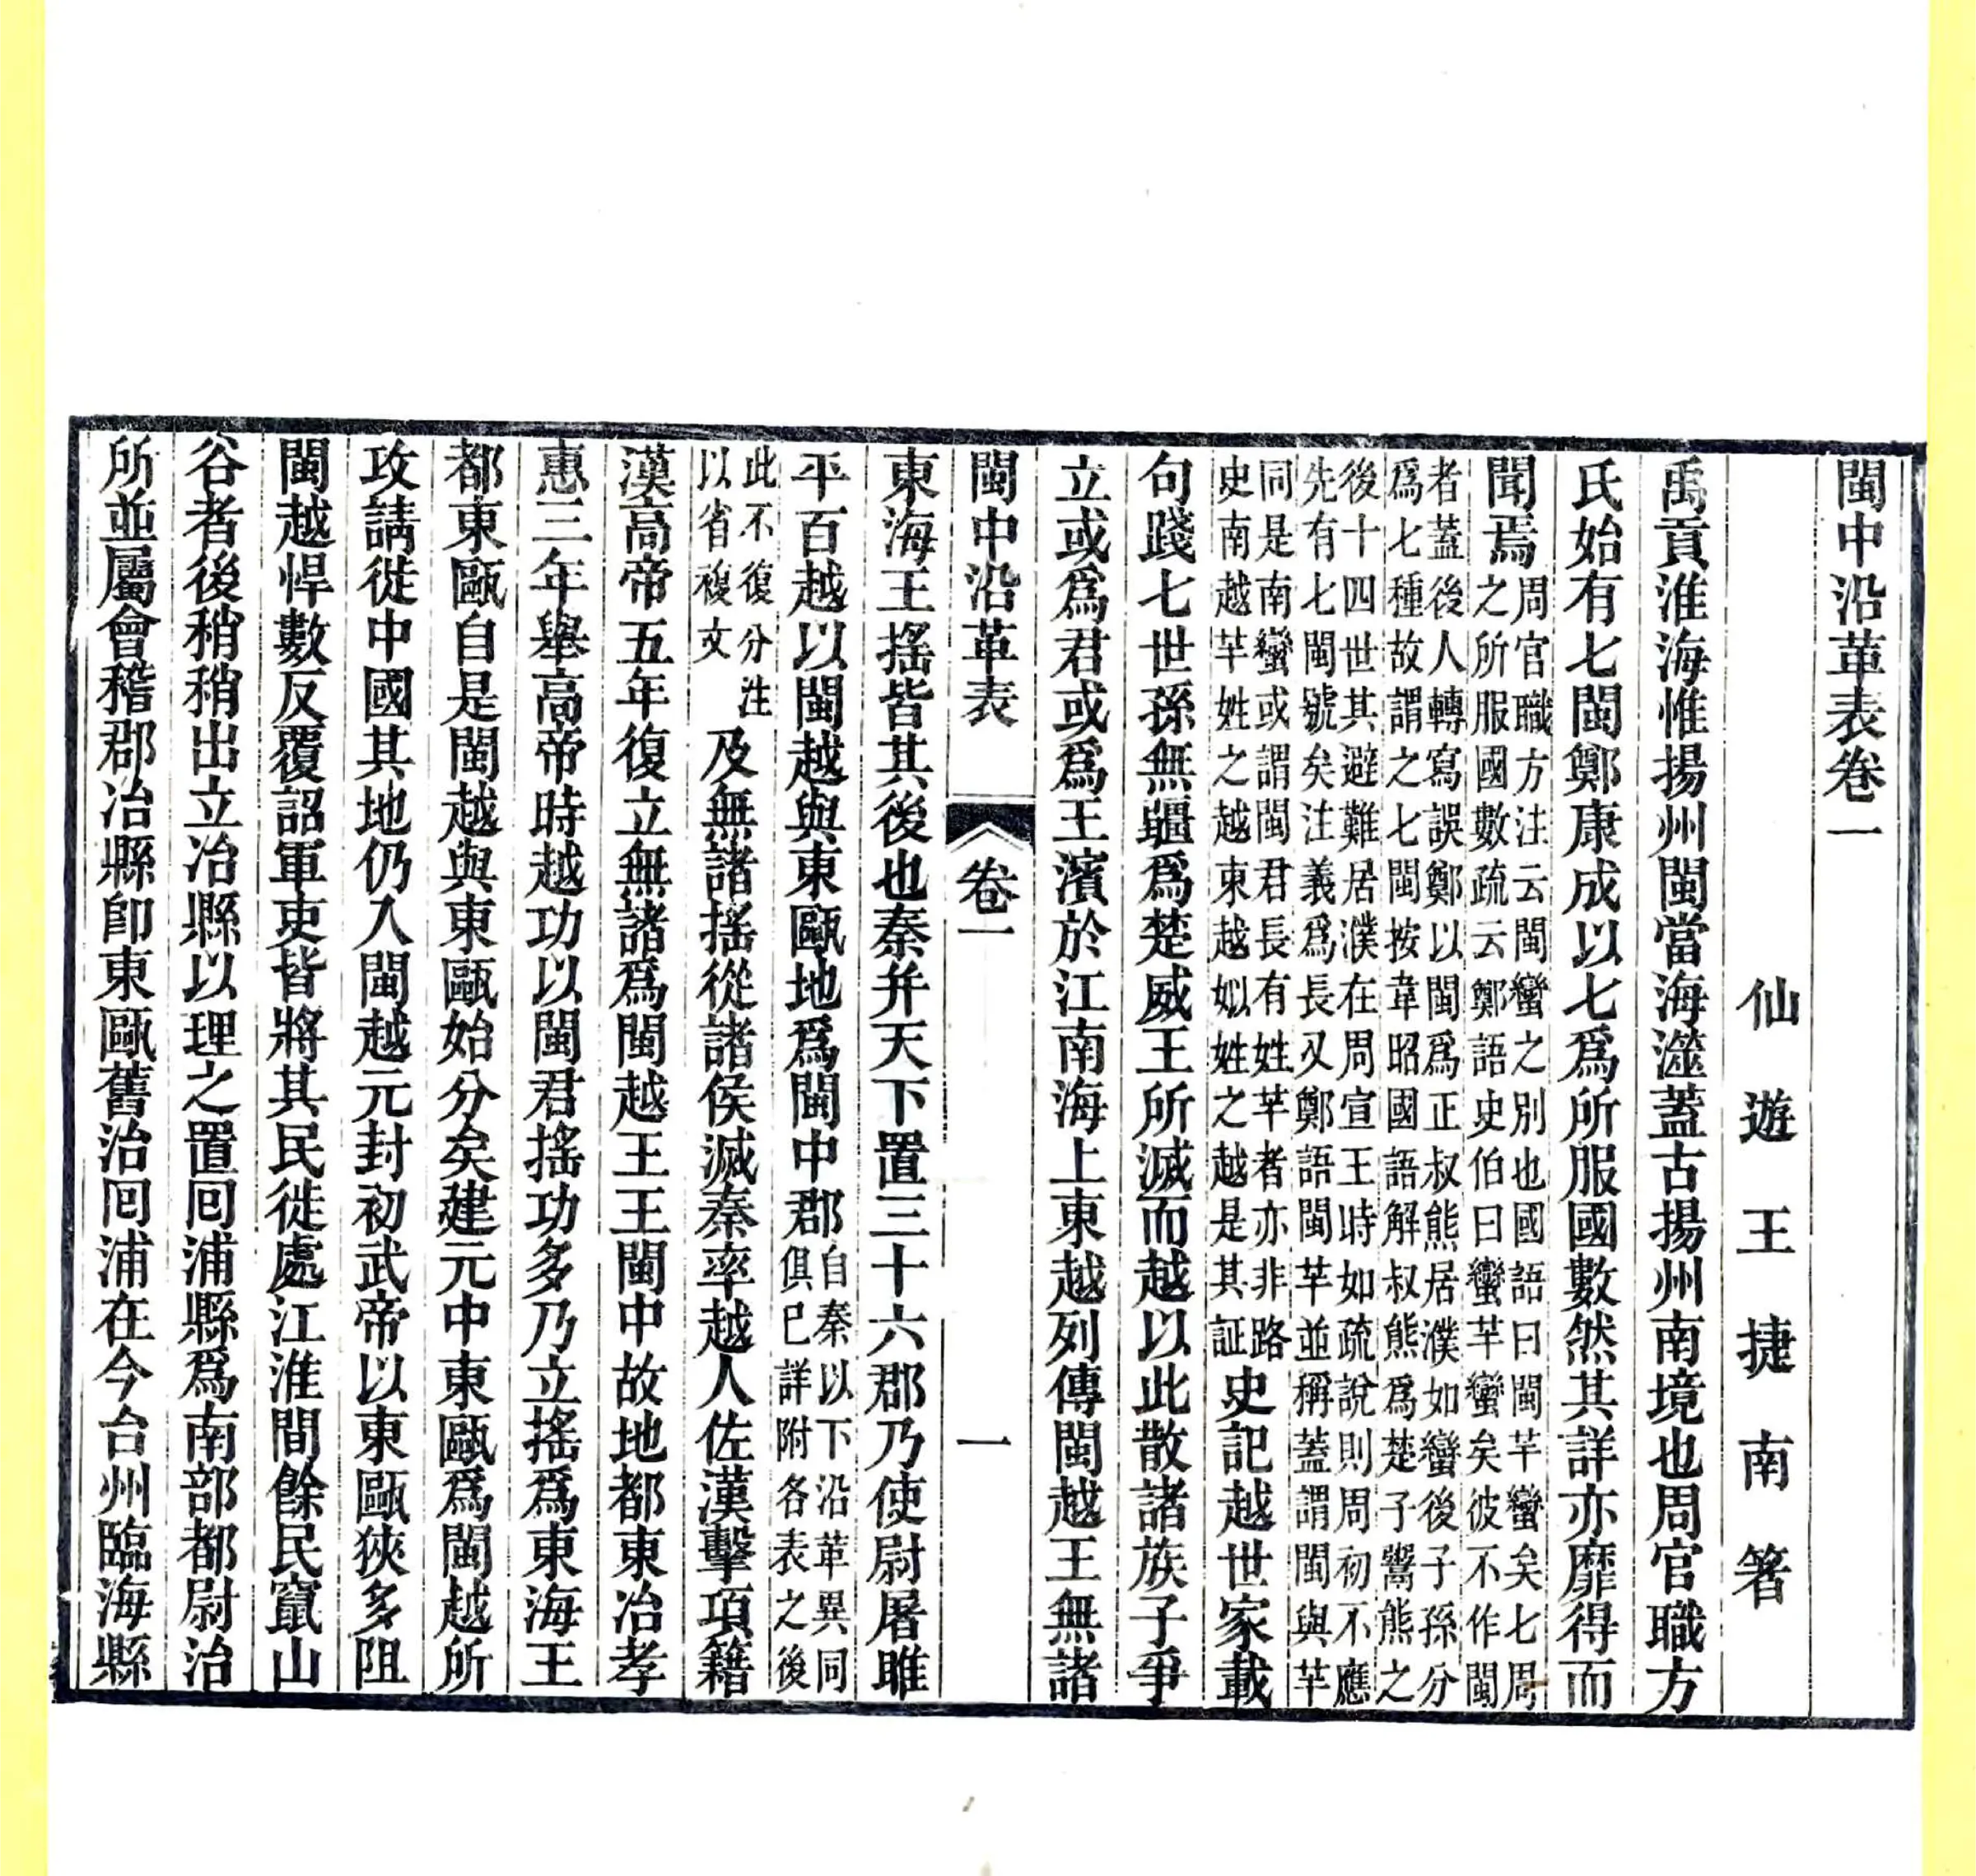 閩中沿革表卷一
仙遊王捷南箸
禹貢淮海惟揚州閩當海澨蓋古揚州南境也周官職方
氏始有七閩鄭康成以七爲所服國數然其詳亦靡得而
聞焉周官職方注云閩蠻之別也國語曰閩芊蠻矣七周
之所服國數疏云鄭語史伯曰蠻芊蠻矣彼不作閩
者蓋後人轉寫誤鄭以閩爲正叔熊居濮如蠻後子孫分
爲七種故謂之七閩按韋昭國語解叔熊爲楚子鬻熊之
後十四世其避難居濮在周宣王時如疏說則周初不應
先有七閩號矣注義爲長又鄭語閩芊並稱蓋謂閩與芊
同是南蠻或謂閩君長有姓芊者亦非路
史南越芊姓之越東越姒姓之越是其証史記越世家載
句踐七世孫無疆爲楚威王所滅而越以此散諸族子爭
立或爲君或爲王濱於江南海上東越列傳閩越王無諸
閩中沿革表 卷一 一
東海王搖皆其後也秦并天下置三十六郡乃使尉屠睢
平百越以閩越與東甌地爲閩中郡自秦以下沿革異同
俱已詳附各表之後
此不復分注
以省複文 及無諸搖從諸侯滅秦率越人佐漢擊項籍
漢高帝五年復立無諸爲閩越王王閩中故地都東冶孝
惠三年舉高帝時越功以閩君搖功多乃立搖爲東海王
都東甌自是閩越與東甌始分矣建元中東甌爲閩越所
攻請徙中國其地仍入閩越元封初武帝以東甌狹多阻
閩越悍數反覆詔軍吏皆將其民徙處江淮間餘民竄山
谷者後稍稍出立冶縣以理之置囘浦縣爲南部都尉治
所並屬會稽郡冶縣卽東甌舊治囘浦在今台州臨海縣